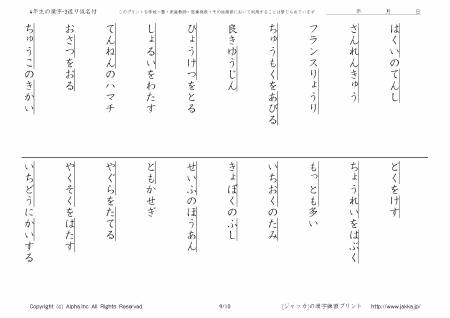 4年生の漢字-3送り仮名付
このプリントを学校・塾・家庭教師・医療福祉・その他施設において利用することは禁じられています
年　　月　　日
はくいのてんし
さんれんきゅう
フランスりょうり
ちゅうもくをあびる
良きゆうじん
ひょうけつをとる
しょるいをわたす
てんねんのハマチ
おさつをおる
ちゅうこのきかい
どくをけす
ちょうれいをはぶく
もっとも多い
いちおくのたみ
きょぼくのふし
せいふのほうあん
ともかせぎ
やぐらをたてる
やくそくをはたす
いちどうにかいする
Copyright (c) Alpha.Inc All Rights Reserved.
9/10
[ジャッカ]の漢字練習プリント　http://www.jakka.jp/